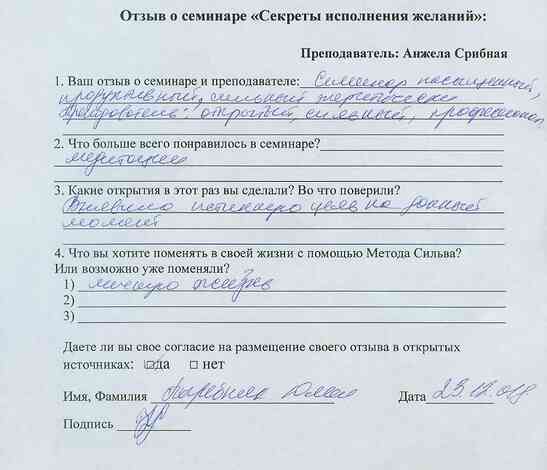 Отзыв о семинаре «Секреты исполнения желаний»:
Преподаватель: Анжела Срибная
1. Ваш отзыв о семинаре и преподавателе: Семинар насыщенный,
продуктивный, сильный энергетически
Преподаватель: открытый, сильный, професионал
2. Что больше всего понравилось в семинаре?
медитации
3. Какие открытия в этот раз вы сделали? Во что поверили?
Выявила истинную цель на данный
момент
4. Что вы хотите поменять в своей жизни с помощью Метода Сильва?
Или возможно уже поменяли?
1) личную жизнь
2)
3)
Даете ли вы свое согласие на размещение своего отзыва в открытых
источниках: да нет
Имя, Фамилия
Дата 23.12.018
Подпись